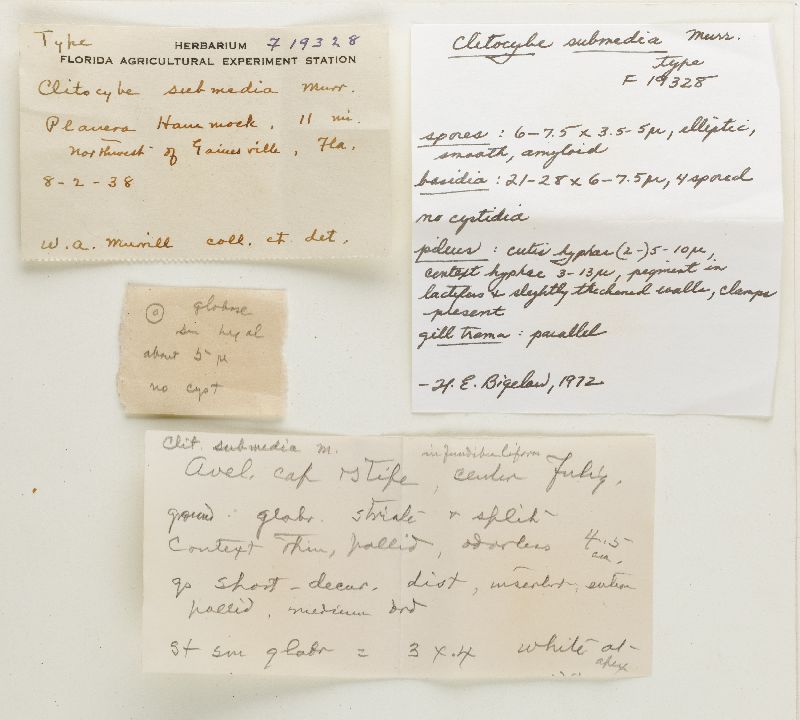 Type
HERBARIUM F 19328
FLORIDA AGRICULTURAL EXPERIMENT STATION
Clitocybe submedia Murr.
Planera Hammock, 11 mi.
northwest of Gainesville, Fla.
8-2-38
W.A. Murrill coll. et det.
Clitocybe submedia Murr.
type
F 19328
spores : 6-7.5 x 3.5-5µ, elliptic,
smooth, amyloid
basidia : 21-28 x 6-7.5µ, 4 spored
no cystidia
pileus : cutis hyphae (2-)5-10µ,
context hyphae 3-13µ, pigment in
lactifers & slightly thickened walls, clamps
present
gill trama : parallel
- H. E. Bigelow, 1972
globose
sm hyal
about 5 µ
no cyst
Clit. submedia M.
infundibuliform
Avel. cap & stipe, center fulig.
ground. glabr. striate & split
Context thin, pallid, odorless 4.5
cm.
gs short-decur. dist, inserted, entire
pallid, medium brd
St sm glabr = 3 x .4 white at
apex